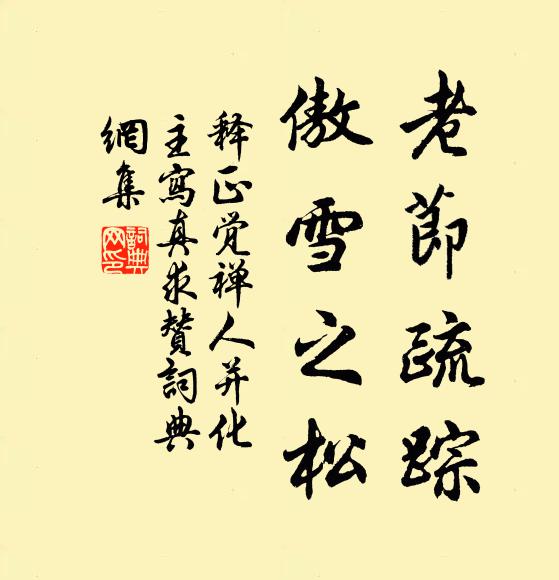 老節疏踪
傲雪之松
释正觉禅人并化
主寫真求贊詞典
網集
詞典
网印